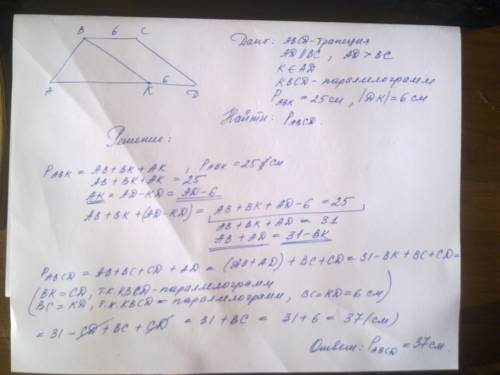 B 6 C
A K 6 D
Дано: ABCD-трапеция
AD∥BC, AD > BC
K∈AD
KBCD-параллелограмм
P_ABK = 25см, |DK|=6см
Найти: P_ABCD.
Решение:
P_ABK = AB+BK+AK, P_ABK = 25 см
AB+BK+AK = 25
AK = AD-KD = AD-6
AB+BK+(AD-KD) = AB+BK+AD-6 = 25
AB+BK+AD = 31
AB+AD = 31-BK
P_ABCD = AB+BC+CD+AD = (AB+AD)+BC+CD = 31-BK+BC+CD=
(BK=CD, т.к. KBCD-параллелограмм
BC=KD, т.к. KBCD-параллелограмм, BC=KD=6 см)
= 31-CD+BC+CD = 31+BC = 31+6 = 37 (см)
Ответ: P_ABCD = 37см.